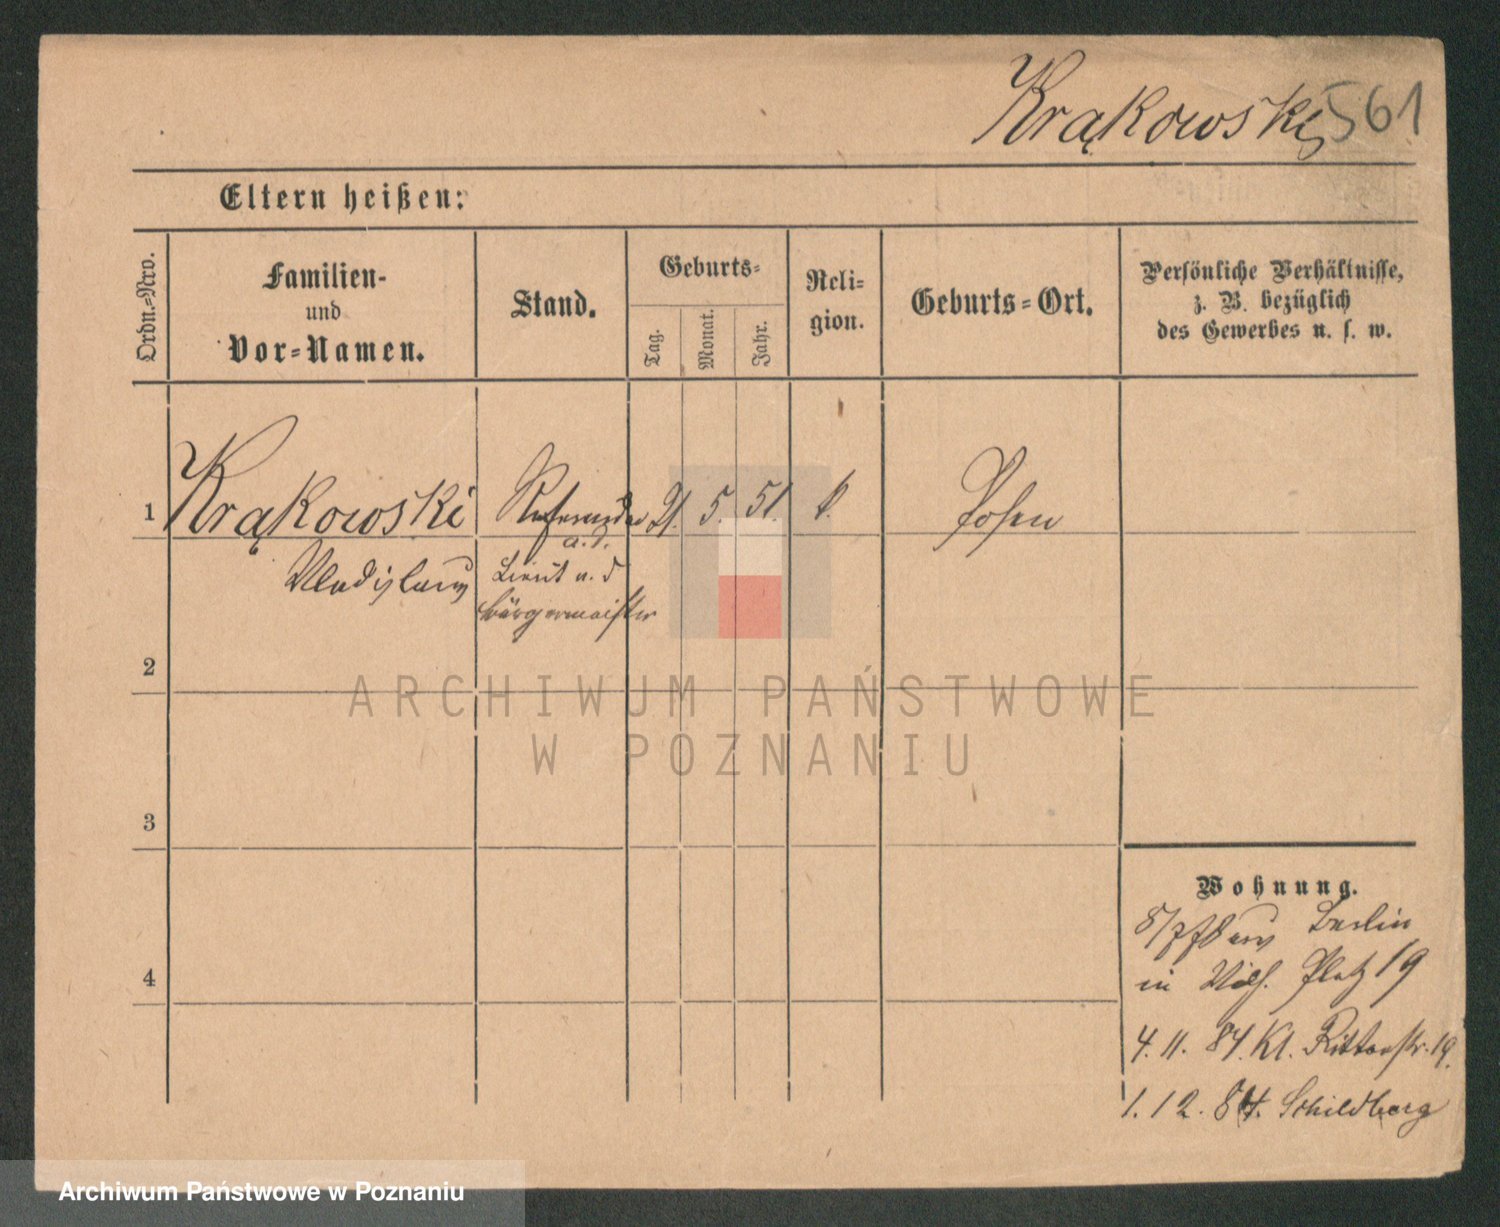 Krąkowski 561
Eltern heißen:
Ordn.=Nro.
Familien-
und
Vor=Namen.
Stand.
Geburts=
Tag.
Monat.
Jahr.
Reli=
gion.
Geburts=Ort.
Persönliche Verhältnisse,
z. B. bezüglich
des Gewerbes u. s. w.
1 Krąkowski Referendar 21. 5. 51. k. Posen
a. D.
Vladislaus Lieut a. D
Bürgermeister
2
3
4
Wohnung.
Berlin
in Wilh. Platz 19
4. 11. 84. Kl. Ritterstr. 19.
1. 12. 84. Schildberg
ARCHIWUM PAŃSTWOWE
W POZNANIU
Archiwum Państwowe w Poznaniu